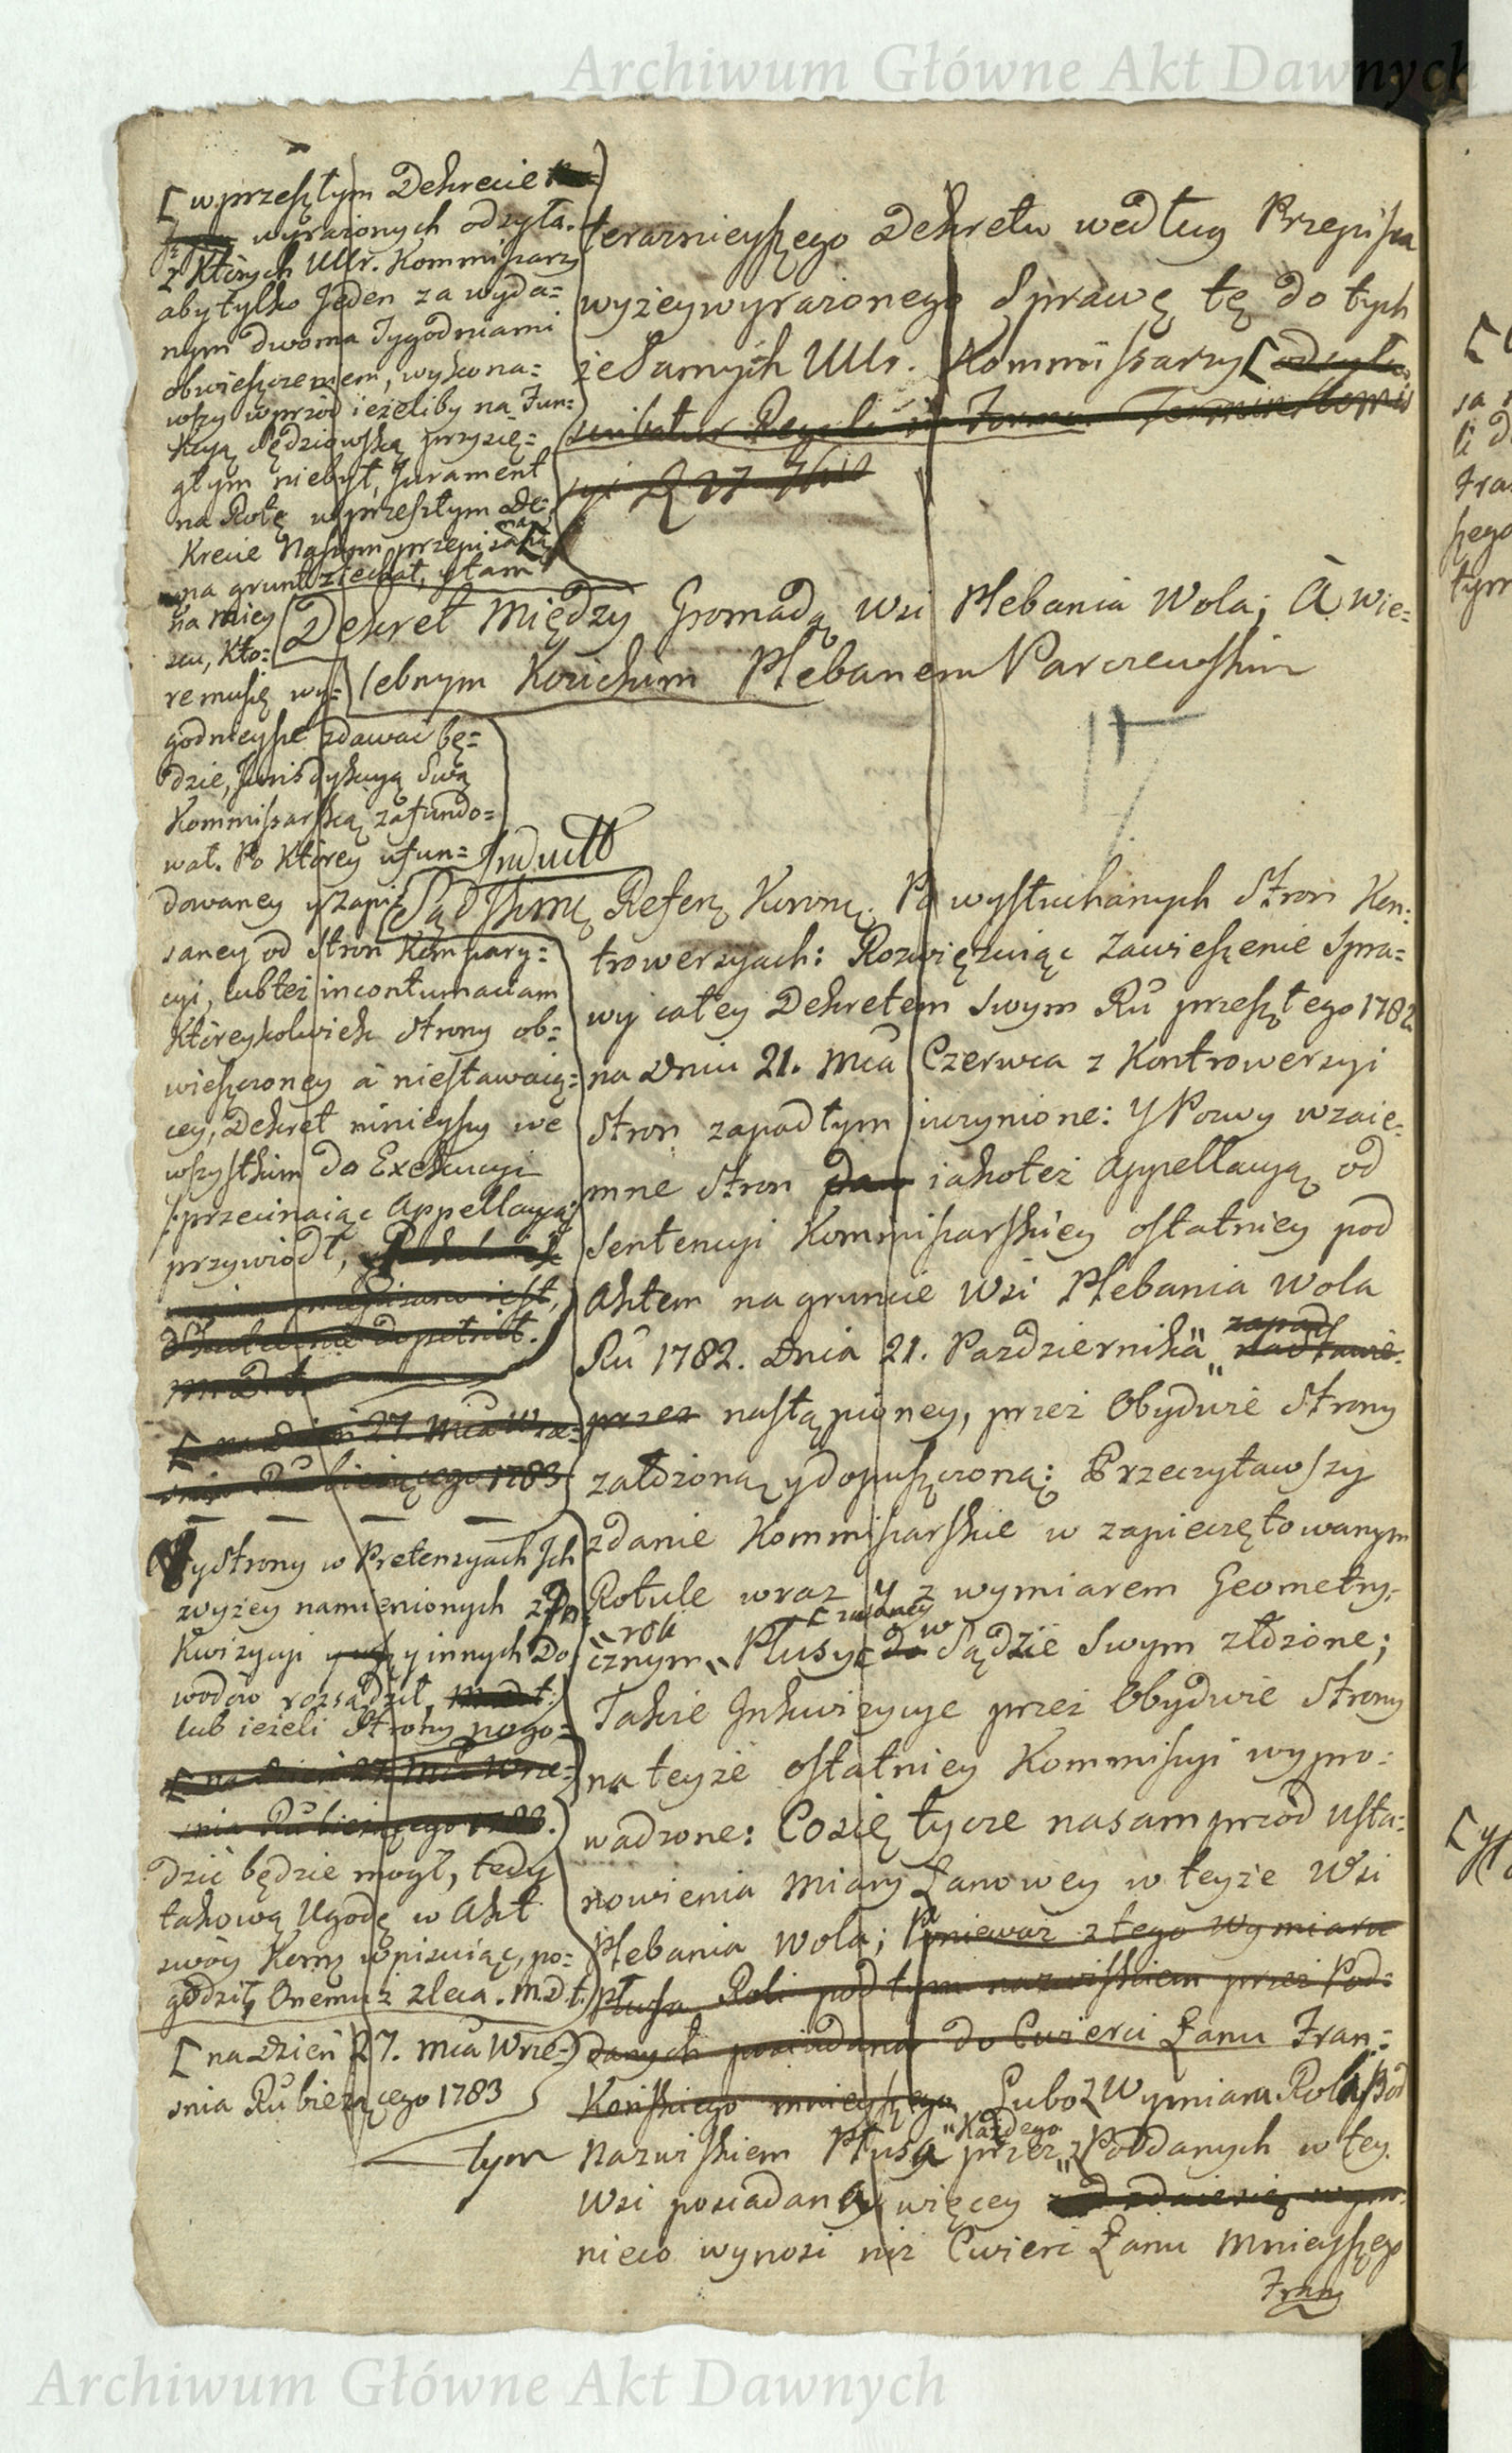 Archiwum Główne Akt Dawnych
[ w przeszłym Dekrecie
wyrażonych odzyła.
z których UUr. Kommissarzy
aby tylko jeden za wyda=
nym dwoma Tygodniami
obwieszczeniem, wykona=
wszy wprzód ieżeliby na Fun=
kcyą Sędziowską przysię=
głym niebył, Jurament
na Rotę w przeszłym De=
krecie Naszym przepisaną
na grunt ziechał, y tam
na miey
scu, Kto=
re mu się wy=
godnieysze zdawać bę=
dzie, Jurisdykcyą Swą
Kommissarską zafundo=
wał. Po którey ufun=
dowaney y zapi=
saney od Stron Kompary=
cyi, lub też in contumaciam
Któreykolwiek Strony ob=
wieszczoney á niestawaią=
cey, Dekret ninieyszy we
wszystkim do Exekucyi
/:przecinaiąc Appellacyą:/
przywiódł,
[ na Dzień 27. Mca Wrze=
śnia Ru bieżącego 1783
y Strony w Pretensyach Ich
zwyżey namienionych z In
kwizycyi y innych Do
wodów rozsądził, m. d. t.
lub ieżeli Strony pogo=
[ na Dzień 27. Mca Wrze=
śnia Ru bieżącego 1783.
dzić będzie mogł, tedy
takową Ugodę w Akt
swóy Komy wpisuiąc, po=
godził, Onemuż zleca. m. d. t.
[ na Dzień 27. Mca Wrze=
śnia Ru bieżącego 1783
teraznieyszego Dekretu według Przepisu
wyżey wyrażonego Sprawę tę do tych
że Samych UUr. Kommissarzy [ odzyła
Dekret Między Gromadą Wsi Plebania Wola; A Wie=
lebnym Kozickim Plebanem Parczewskim
17
Induct
Sąd Jkmci Referę Koronę. Po wysłuchanych Stron Kon:
trowersyach: Rozwięzuiąc Zawieszenie Spra=
wy całey Dekretem Swym Ru przeszłego 1782
na Dniu 21. Mca Czerwca z Kontrowersyi
Stron zapadłym uczynione: Y Pozwy wzaie=
mne Stron iakoteż Appellacyą od
Sentencyi Kommissarskiey ostatniey pod
Aktem na gruncie Wsi Plebania Wola
zapad
Ru 1782. Dnia 21. Pazdziernika
przez nastąpioney, przez Obydwie Strony
założoną y dopuszczoną: Przeczytawszy
zdanie Kommissarskie w zapieczętowanym
Rotule wraz y z wymiarem Geometry=
[ zwaney
cznym roli Płusy do w Sądzie Swym złożone;
Także Inkwizycye przez Obydwie Strony
na teyże ostatniey Kommissyi wypro=
wadzone: Co się tycze nasamprzód Usta=
nowienia Miary Łanowey w teyże Wsi
Plebania Wola; Ponieważ z tego Wymiaru
Płusa Roli pod tym nazwiskiem przez Pod=
danych posiadana do Cwierci Łanu Fran=
końskiego mnieyszego Lubo z Wymiaru Rola pod
każdego
tym Nazwiskiem Płusa przez z Poddanych w tey
Wsi posiadana więcey
nieco wynosi niż Cwierć Łanu Mnieyszego
Fran
Archiwum Główne Akt Dawnych